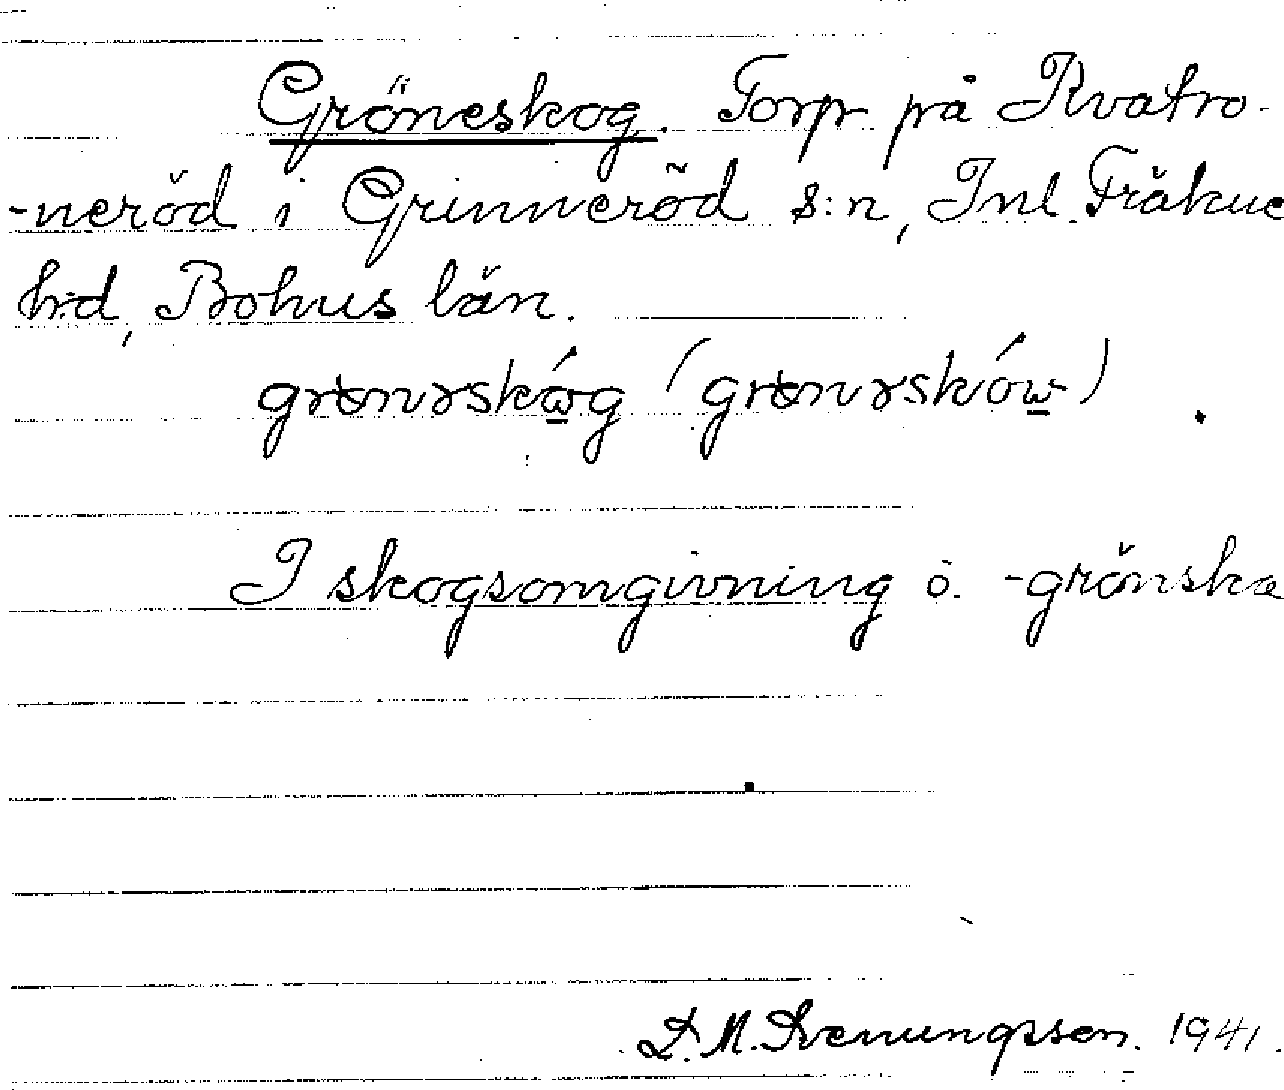 Gröneskog. Torp på Kvatro-
-neröd i Grinneröd s:n, Inl. Fräkne
h:d, Bohus län.
I skogsomgivning o. -grönska
M. Svenungsson. 1941.